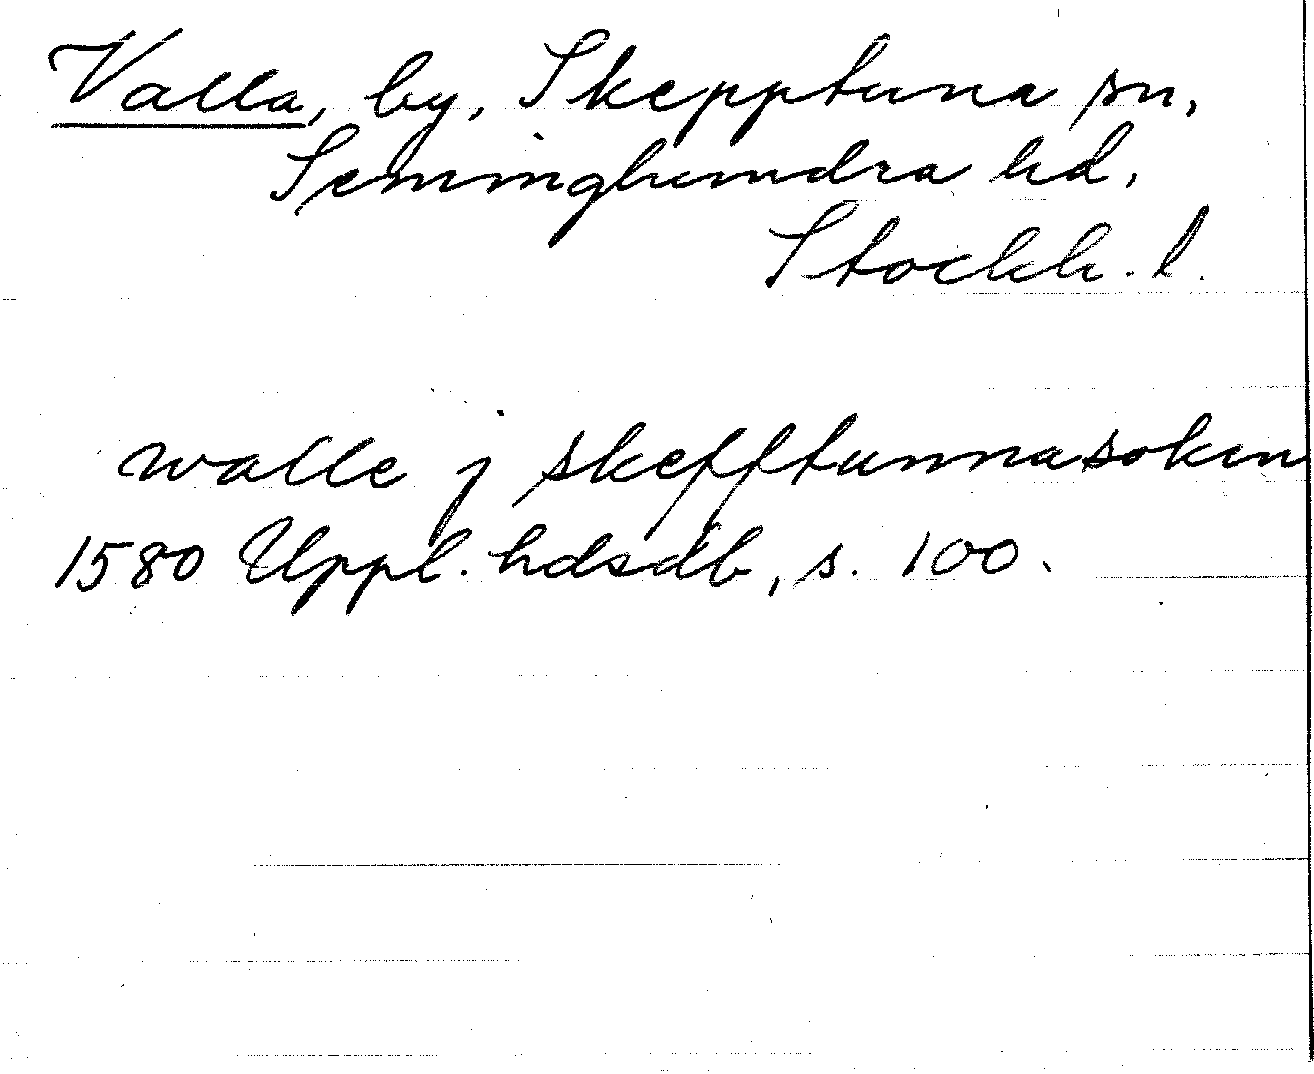 Valla, by, Skepptuna sn,
Seminghundra hd,
Stockh. l.
walle j skefftunna soken
1580 Uppl. hdsdb, s. 100.